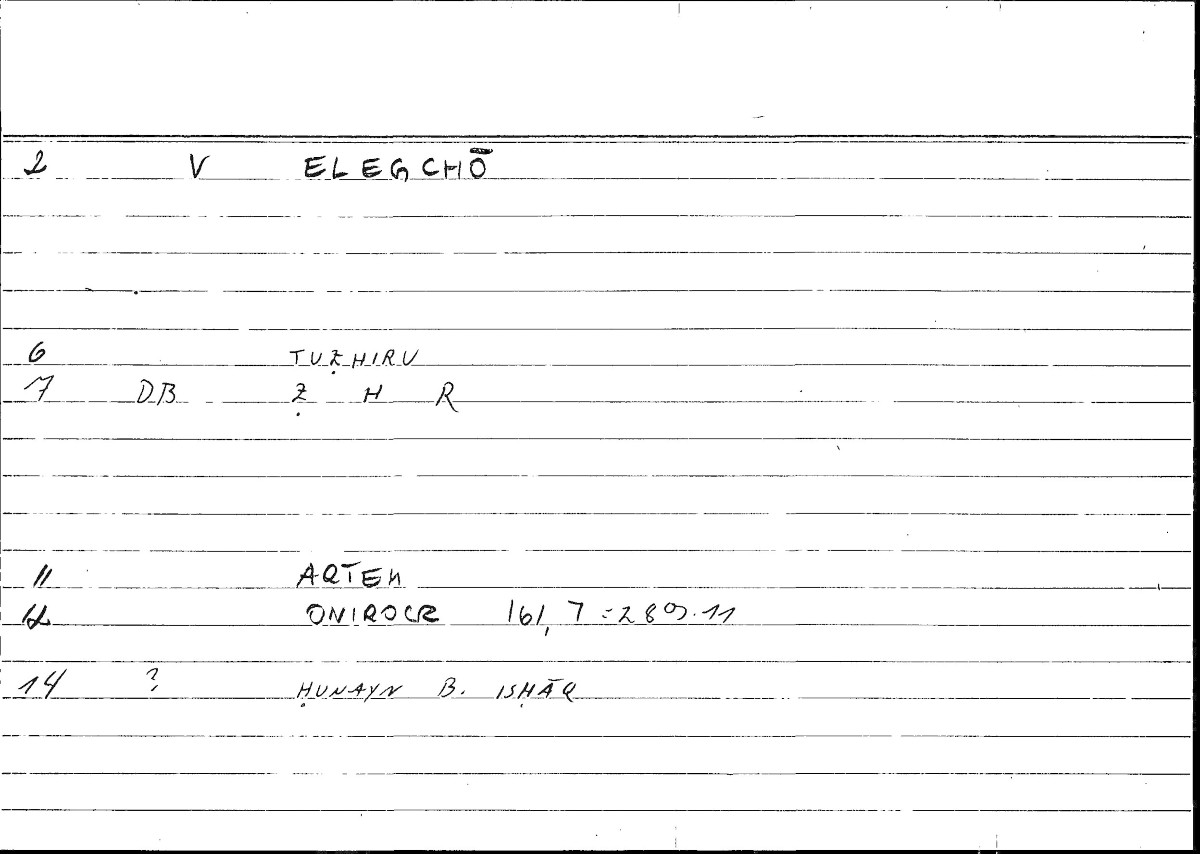 2 V ELEGCHŌ
6 TUẒHIRU
7 DB Ẓ H R
11 ARTEM
12 ONIROCR 161,7=289.11
14 ? ḤUNAYN B. ISḤĀQ